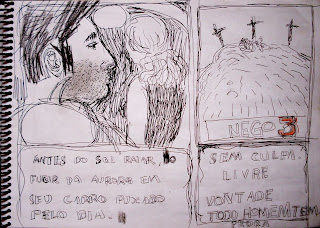 NEGO 3
ANTES DO SOL RAIAR, O
FUGIR DA AURORA EM
SEU CARRO PUXADO
PELO DIA.
SEM CULPA.
LIVRE
VONTADE
TODO HOMEM TEM